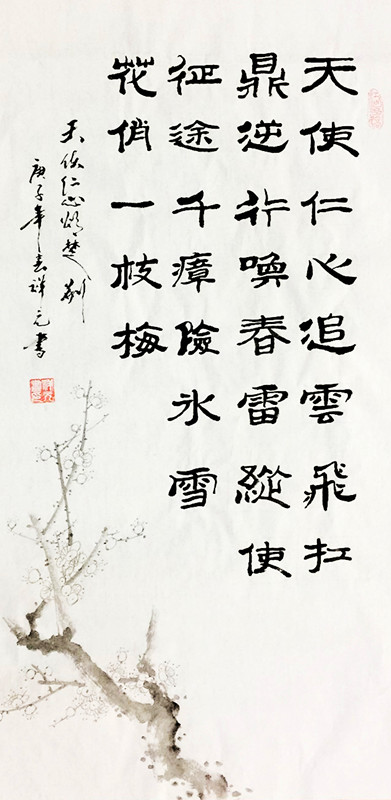 天使仁心追雲飛扛
鼎逆行喚春雷縱使
征途千瘴險氷雪
花俏一枝梅
天使仁心頌楚剣
庚子年春祥元書